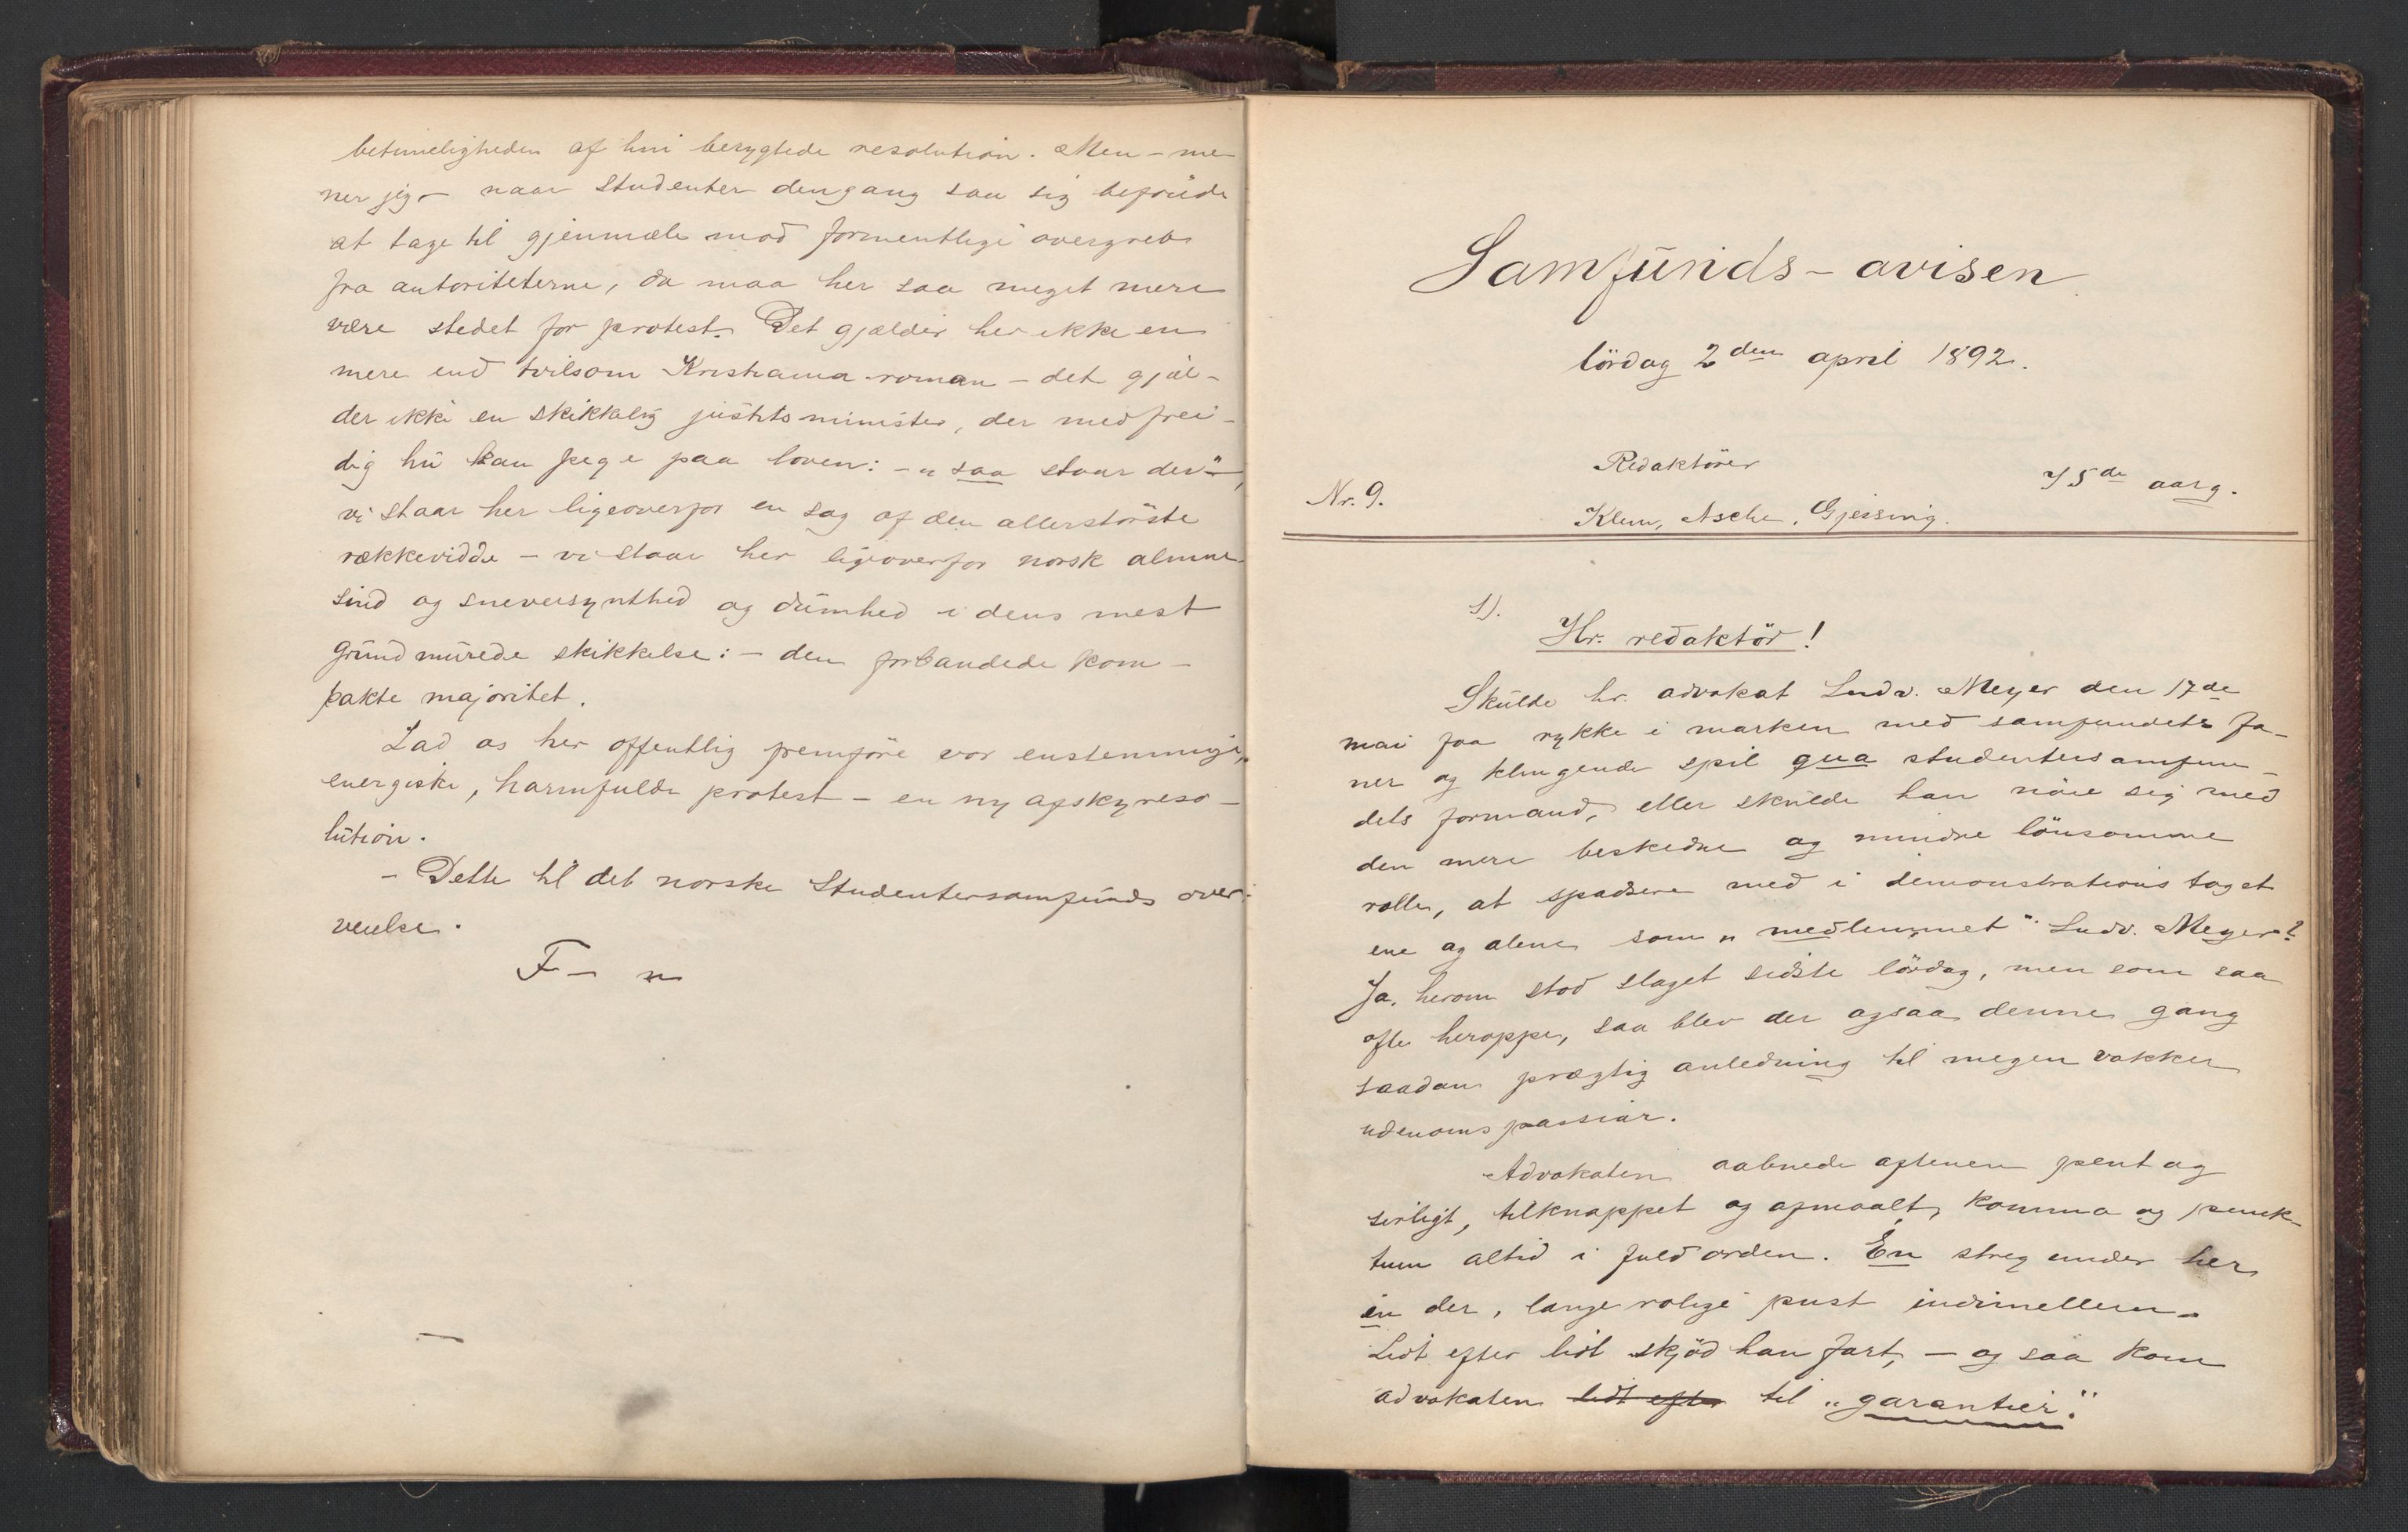 betimeligheden af hin berygtede resolution. Men – me-
ner jeg – naar studenter dengang saa sig beføiede
at tage til gjenmæle mod formentlige overgreb
fra autoriteterne, da maa her saa meget mere
være stedet for protest. Det gjælder her ikke en
mere end tvilsom Kristiania-roman – det gjæl-
der ikke en skikkelig justitsminister, der med frei-
dig hu kan pege paa loven: – „saa staar der“ –,
vi staar her ligeoverfor en sag af den allerstörste
rækkevidde – vi staar her ligeoverfor norsk almue-
sind og sneversynthed og dumhed i dens mest
grundmurede skikkelse: – den forbandede kom-
pakte majoritet.
Lad os her offentlig fremföre vor enstemmige,
energiske, harmfulde protest – en ny afskyreso-
lution.
– Dette til det norske Studentersamfunds over-
veielse.
F– n
Samfunds-avisen.
lördag 2den april 1892.
Redaktörer
Nr. 9.
Klem, Asche, Gjessing.
35de aarg.
1).
Hr. redaktör!
Skulde hr. advokat Ludv. Meyer den 17de
mai faa rykke i marken med samfundets fa-
ner og klingende spil qua studentersamfun-
dets formand, eller skulde han nöie sig med
den mere beskedne og mindre lönsomme
rolle, at spadsere med i demonstrationstoget
ene og alene som „medlemmet“ Ludv. Meyer?
Ja, herom stod slaget sidste lördag, men som saa
ofte heroppe, saa blev der ogsaa denne gang
saadan prægtig anledning til megen vakker
udenomspassiar.
Advokaten aabnede aftenen pent og
sirligt, tilknappet og afmaalt, komma og punk-
tum altid i fuld orden. En streg under her
en der, lange rolige pust indimellem.
Lidt efter lidt skjöd han fart, – og saa kom
advokaten lidt efter til „garantier“.